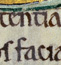 tentia
os facia